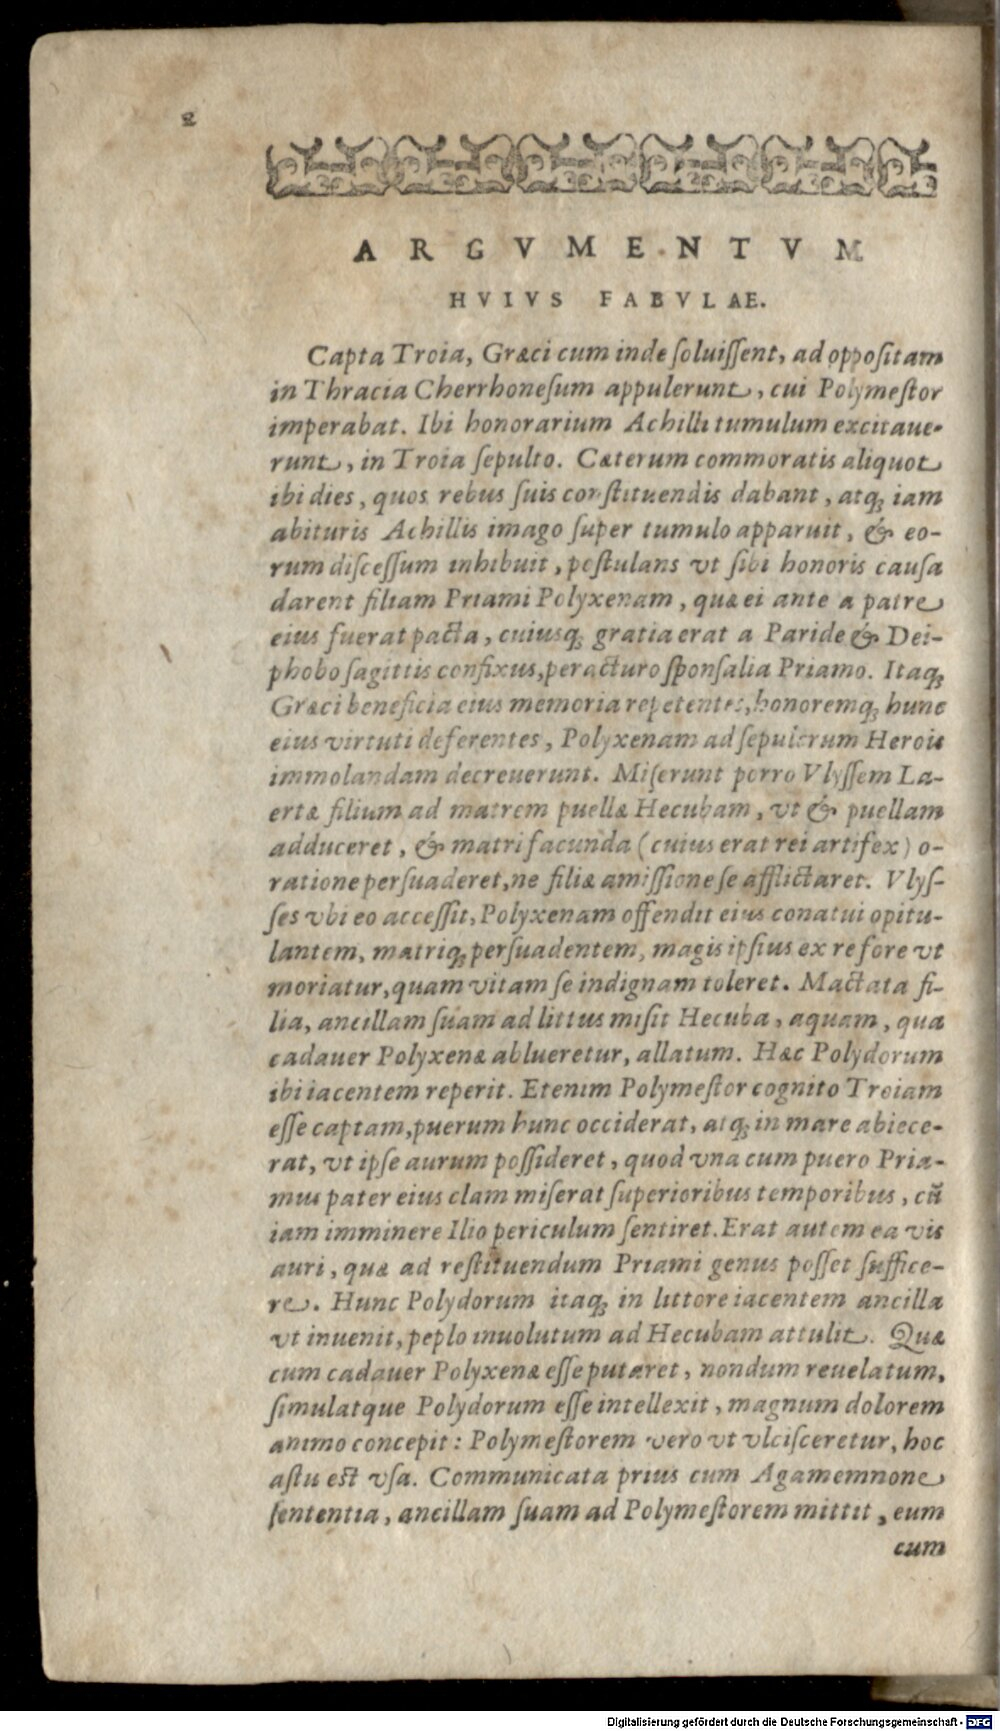 2
ARGVMENTVM
HVIVS FABVLAE.
Capta Troia, Græci cum inde ſoluiſſent, ad oppoſitam
in Thracia Cherrhoneſum appulerunt, cui Polymeſtor
imperabat. Ibi honorarium Achilli tumulum excitaue-
runt, in Troia ſepulto. Cæterum commoratis aliquot
ibi dies, quos rebus ſuis conſtituendis dabant, atq; iam
abituris Achillis imago ſuper tumulo apparuit, & eo-
rum diſceſſum inhibuit, poſtulans vt ſibi honoris cauſa
darent filiam Priami Polyxenam, quæ ei ante a patre
eius fuerat pacta, cuiusq; gratia erat a Paride & Dei-
phobo ſagittis confixus, peracturo ſponſalia Priamo. Itaq;
Græci beneficia eius memoria repetentes, honoremq; hunc
eius virtuti deferentes, Polyxenam ad ſepulcrum Herois
immolandam decreuerunt. Miſerunt porro Vlyſſem La-
ertæ filium ad matrem puellæ Hecubam, vt & puellam
adduceret, & matri facunda (cuius erat rei artifex) o-
ratione perſuaderet, ne filiæ amiſſione ſe afflictaret. Vlyſ-
ſes vbi eo acceſſit, Polyxenam offendit eius conatui opitu-
lantem, matriq; perſuadentem, magis ipſius ex re fore vt
moriatur, quam vitam ſe indignam toleret. Mactata fi-
lia, ancillam ſuam ad littus miſit Hecuba, aquam, qua
cadauer Polyxenæ ablueretur, allatum. Hæc Polydorum
ibi iacentem reperit. Etenim Polymeſtor cognito Troiam
eſſe captam, puerum hunc occiderat, atq; in mare abiece-
rat, vt ipſe aurum poſſideret, quod vna cum puero Pria-
mus pater eius clam miſerat ſuperioribus temporibus, cũ
iam imminere Ilio periculum ſentiret. Erat autem ea vis
auri, quæ ad reſtituendum Priami genus poſſet ſuffice-
re. Hunc Polydorum itaq; in littore iacentem ancilla
vt inuenit, peplo inuolutum ad Hecubam attulit. Quæ
cum cadauer Polyxenæ eſſe putaret, nondum reuelatum,
ſimulatque Polydorum eſſe intellexit, magnum dolorem
animo concepit: Polymeſtorem vero vt vlciſceretur, hoc
aſtu eſt vſa. Communicata prius cum Agamemnone
ſententia, ancillam ſuam ad Polymeſtorem mittit, eum
cum
Digitalisierung gefördert durch die Deutsche Forschungsgemeinschaft - DFG